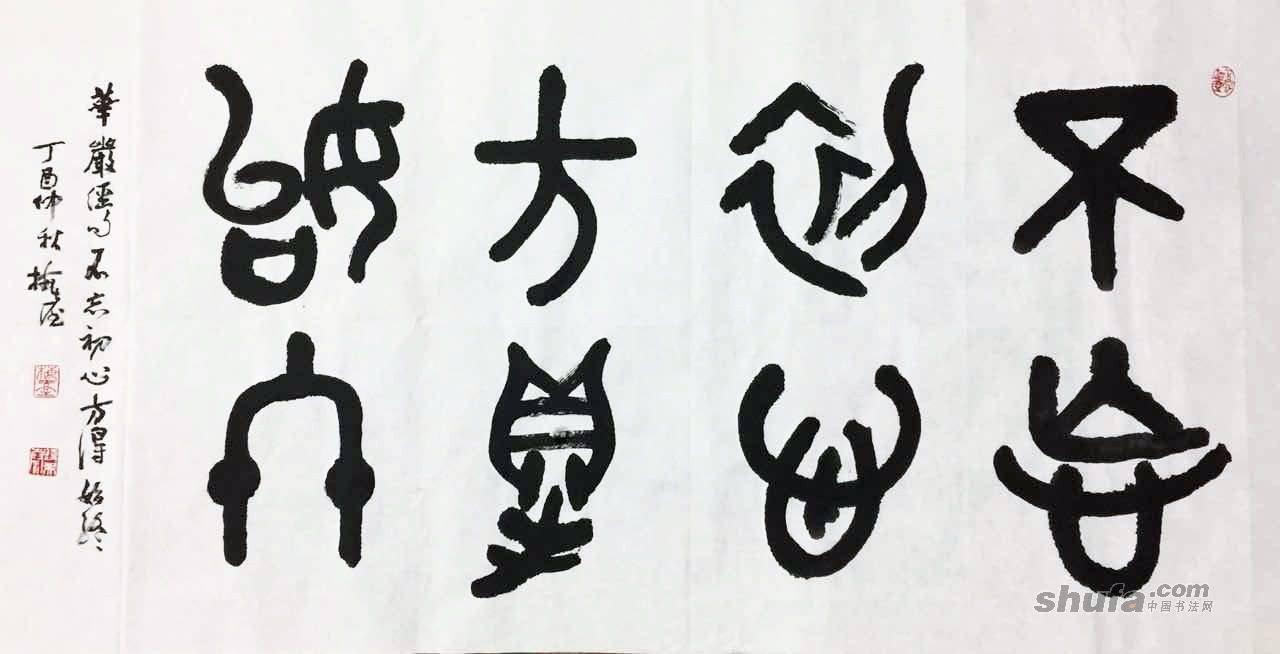 不忘
初心
方得
始終
華嚴經句不忘初心方得始終
丁酉仲秋
shufa.com
中国书法网